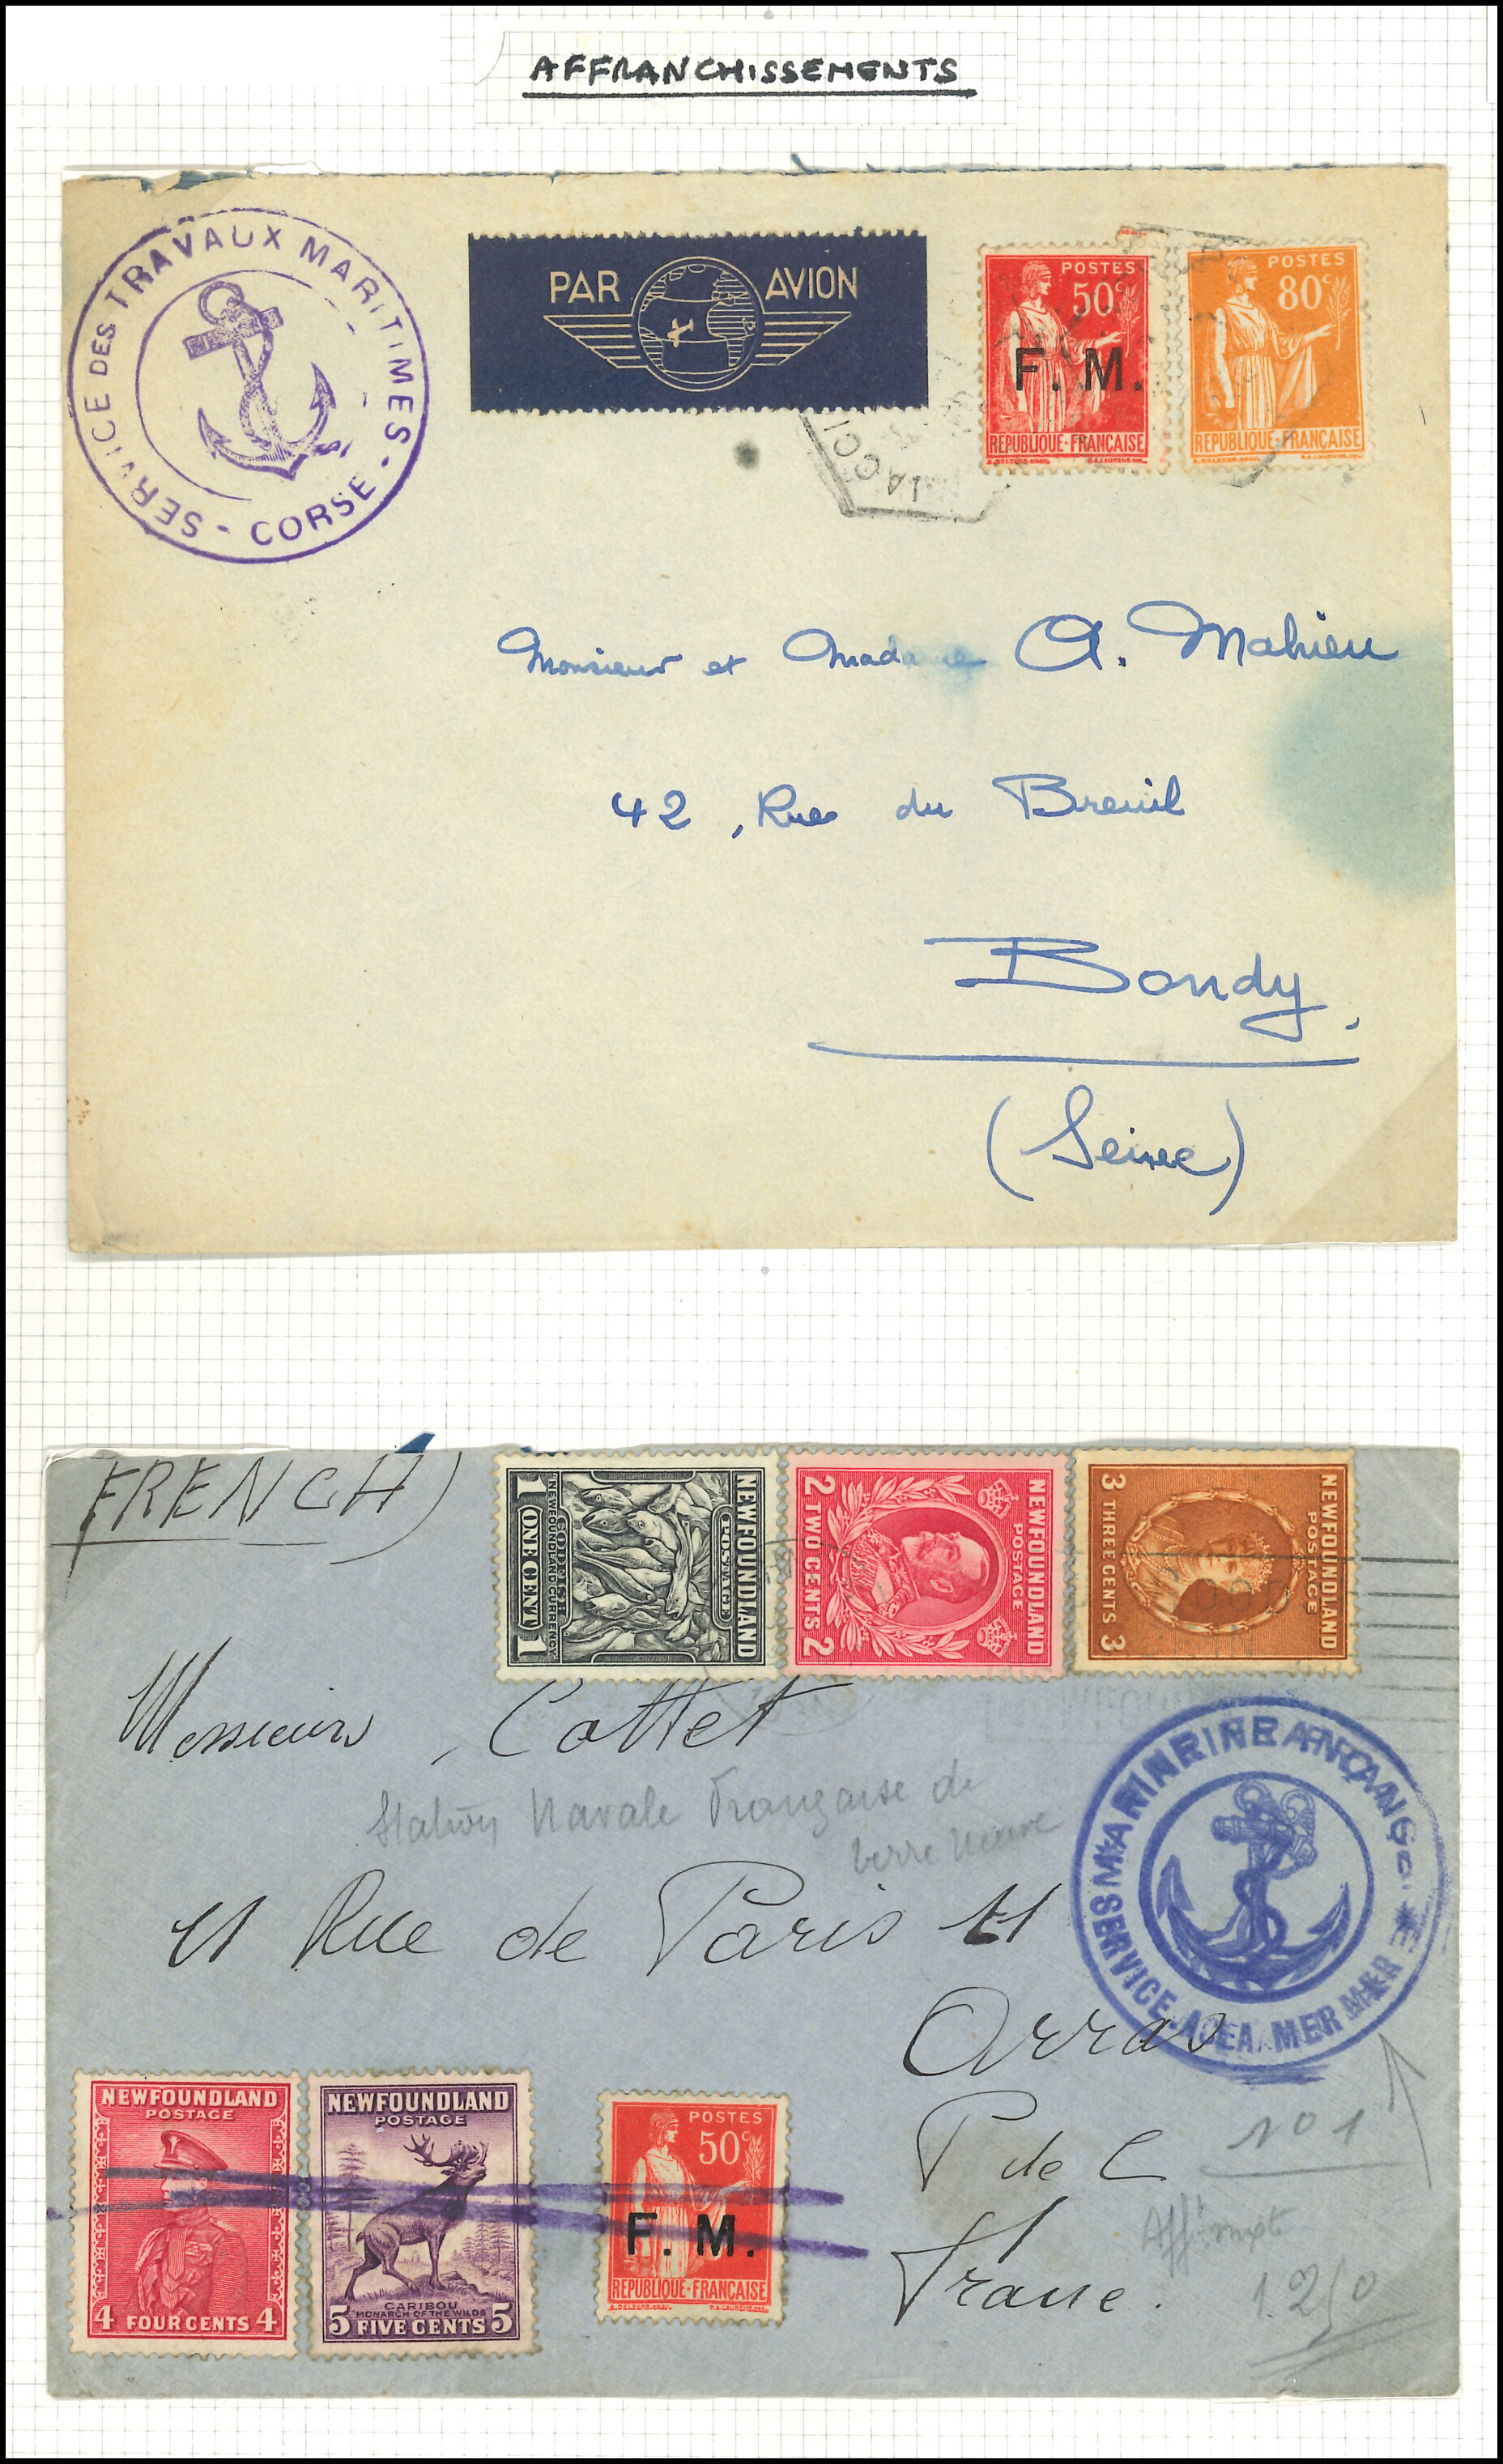 AFFRANCHISSEMENTS
SERVICE DES TRAVAUX MARITIMES - CORSE -
PAR AVION
POSTES
50c
F. M.
REPUBLIQUE-FRANÇAISE
POSTES
80c
REPUBLIQUE-FRANÇAISE
Monsieur et Madame A. Mahieu
42, Rue du Breuil
Bondy.
(Seine)
FRENCH)
NEWFOUNDLAND
POSTAGE
CODFISH
"NEWFOUNDLAND CURRENCY"
1 ONE CENT 1
NEWFOUNDLAND
POSTAGE
2 TWO CENTS 2
NEWFOUNDLAND
POSTAGE
3 THREE CENTS 3
Messieurs, Cottet
Station Navale Française de
terre neuve
41 Rue de Paris 41
Arras
P de C
France.
MARINE FRANÇAISE
SERVICE A LA MER
No 1
NEWFOUNDLAND
POSTAGE
4 FOUR CENTS 4
NEWFOUNDLAND
POSTAGE
CARIBOU
"MONARCH OF THE WILDS"
5 FIVE CENTS 5
POSTES
50c
F. M.
REPUBLIQUE-FRANÇAISE